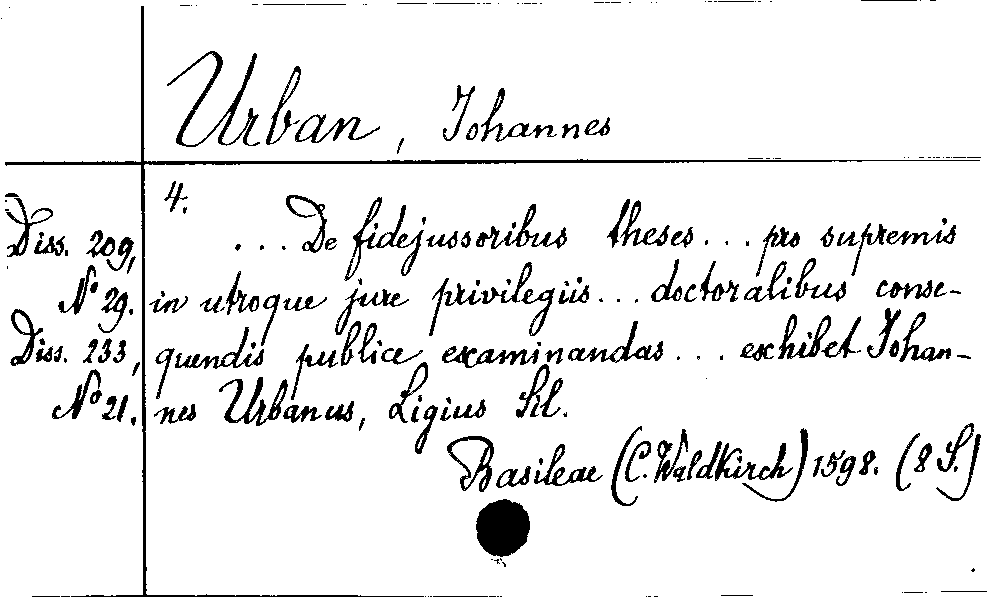 Urban, Johannes
4.
Diss. 209, ... De fidejussoribus theses... pro supremis
No 29. in utroque jure privilegiis... doctoralibus conse-
Diss. 233, quendis publice examinandas... exhibet Johan-
No 21. nes Urbanus, Ligius Sil.
Basileae (C. Waldkirch) 1598. (8 S.)